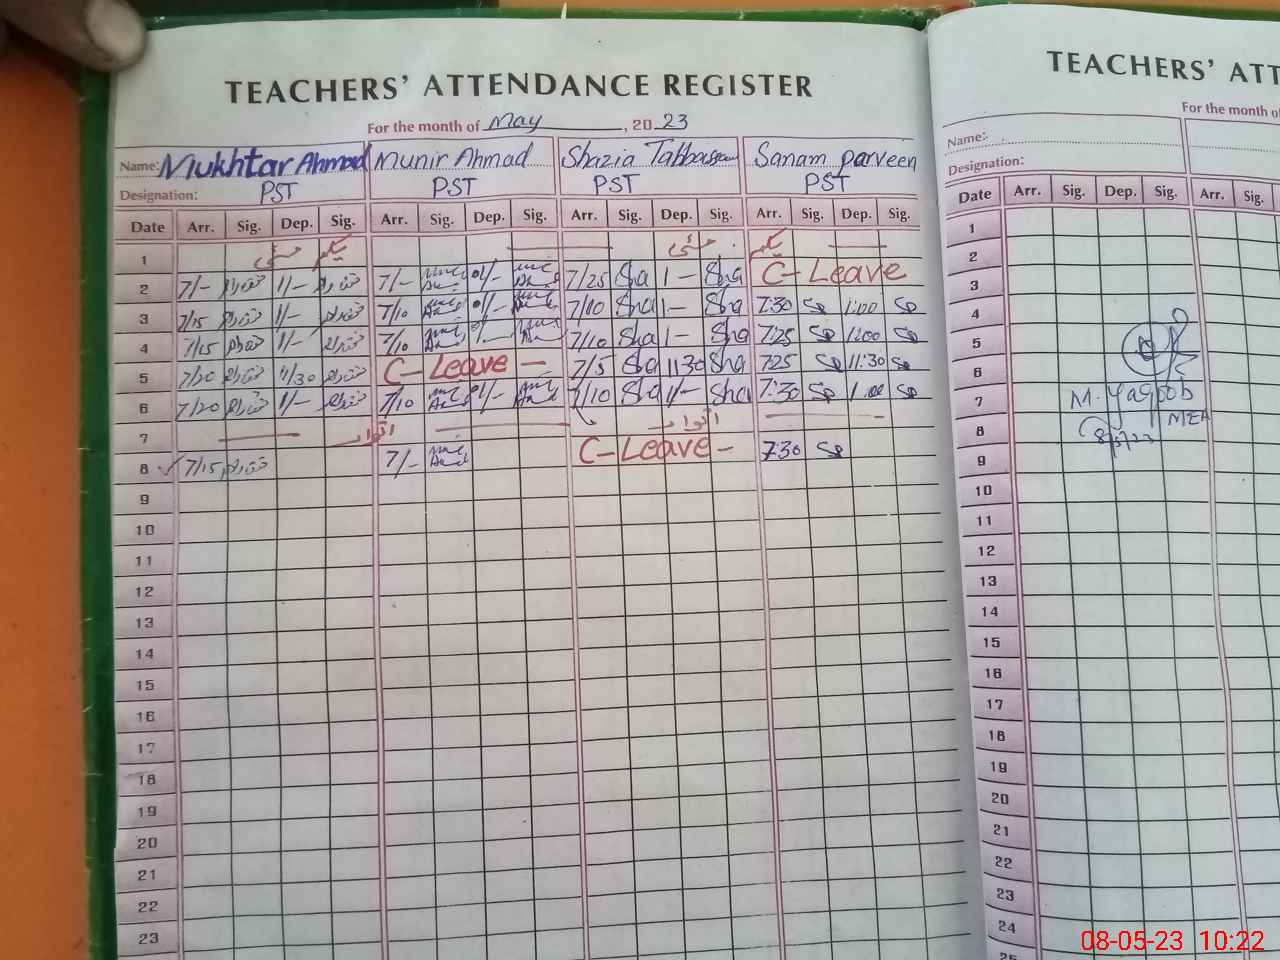 TEACHERS' ATTENDANCE REGISTER
For the month of May, 2023
Name: Mukhtar Ahmad Munir Ahmad Shazia Tabbassum Sanam parveen
Designation: PST PST PST PST
Date Arr. Sig. Dep. Sig. Arr. Sig. Dep. Sig. Arr. Sig. Dep. Sig. Arr. Sig. Dep. Sig.
1
2 7/- 1/- 7/- 7/25 Sha 1- Sha C-Leave
3 7/15 1/- 7/10 7/10 Sha 1- Sha 7:30 1:00
4 7/15 1/- 7/10 7/10 Sha 1- Sha 7:25 1:00
5 11/30 C-Leave - 7/5 Sha 11:30 Sha 7:25 11:30
6 7/20 1/- 7/10 7/10 Sha 1/- Sha 7:30 1:00
7 اتوار اتوار
8 7/15 7/- C-Leave - 7:30
9
10
11
12
13
14
15
16
17
18
19
20
21
22
23
TEACHERS' ATT
For the month of
Name:
Designation:
Date Arr. Sig. Dep. Sig. Arr. Sig.
1
2
3
4
5
6
7 M. Yaqoob
8 MEA
9
10
11
12
13
14
15
16
17
18
19
20
21
22
23
24
25
08-05-23 10:22